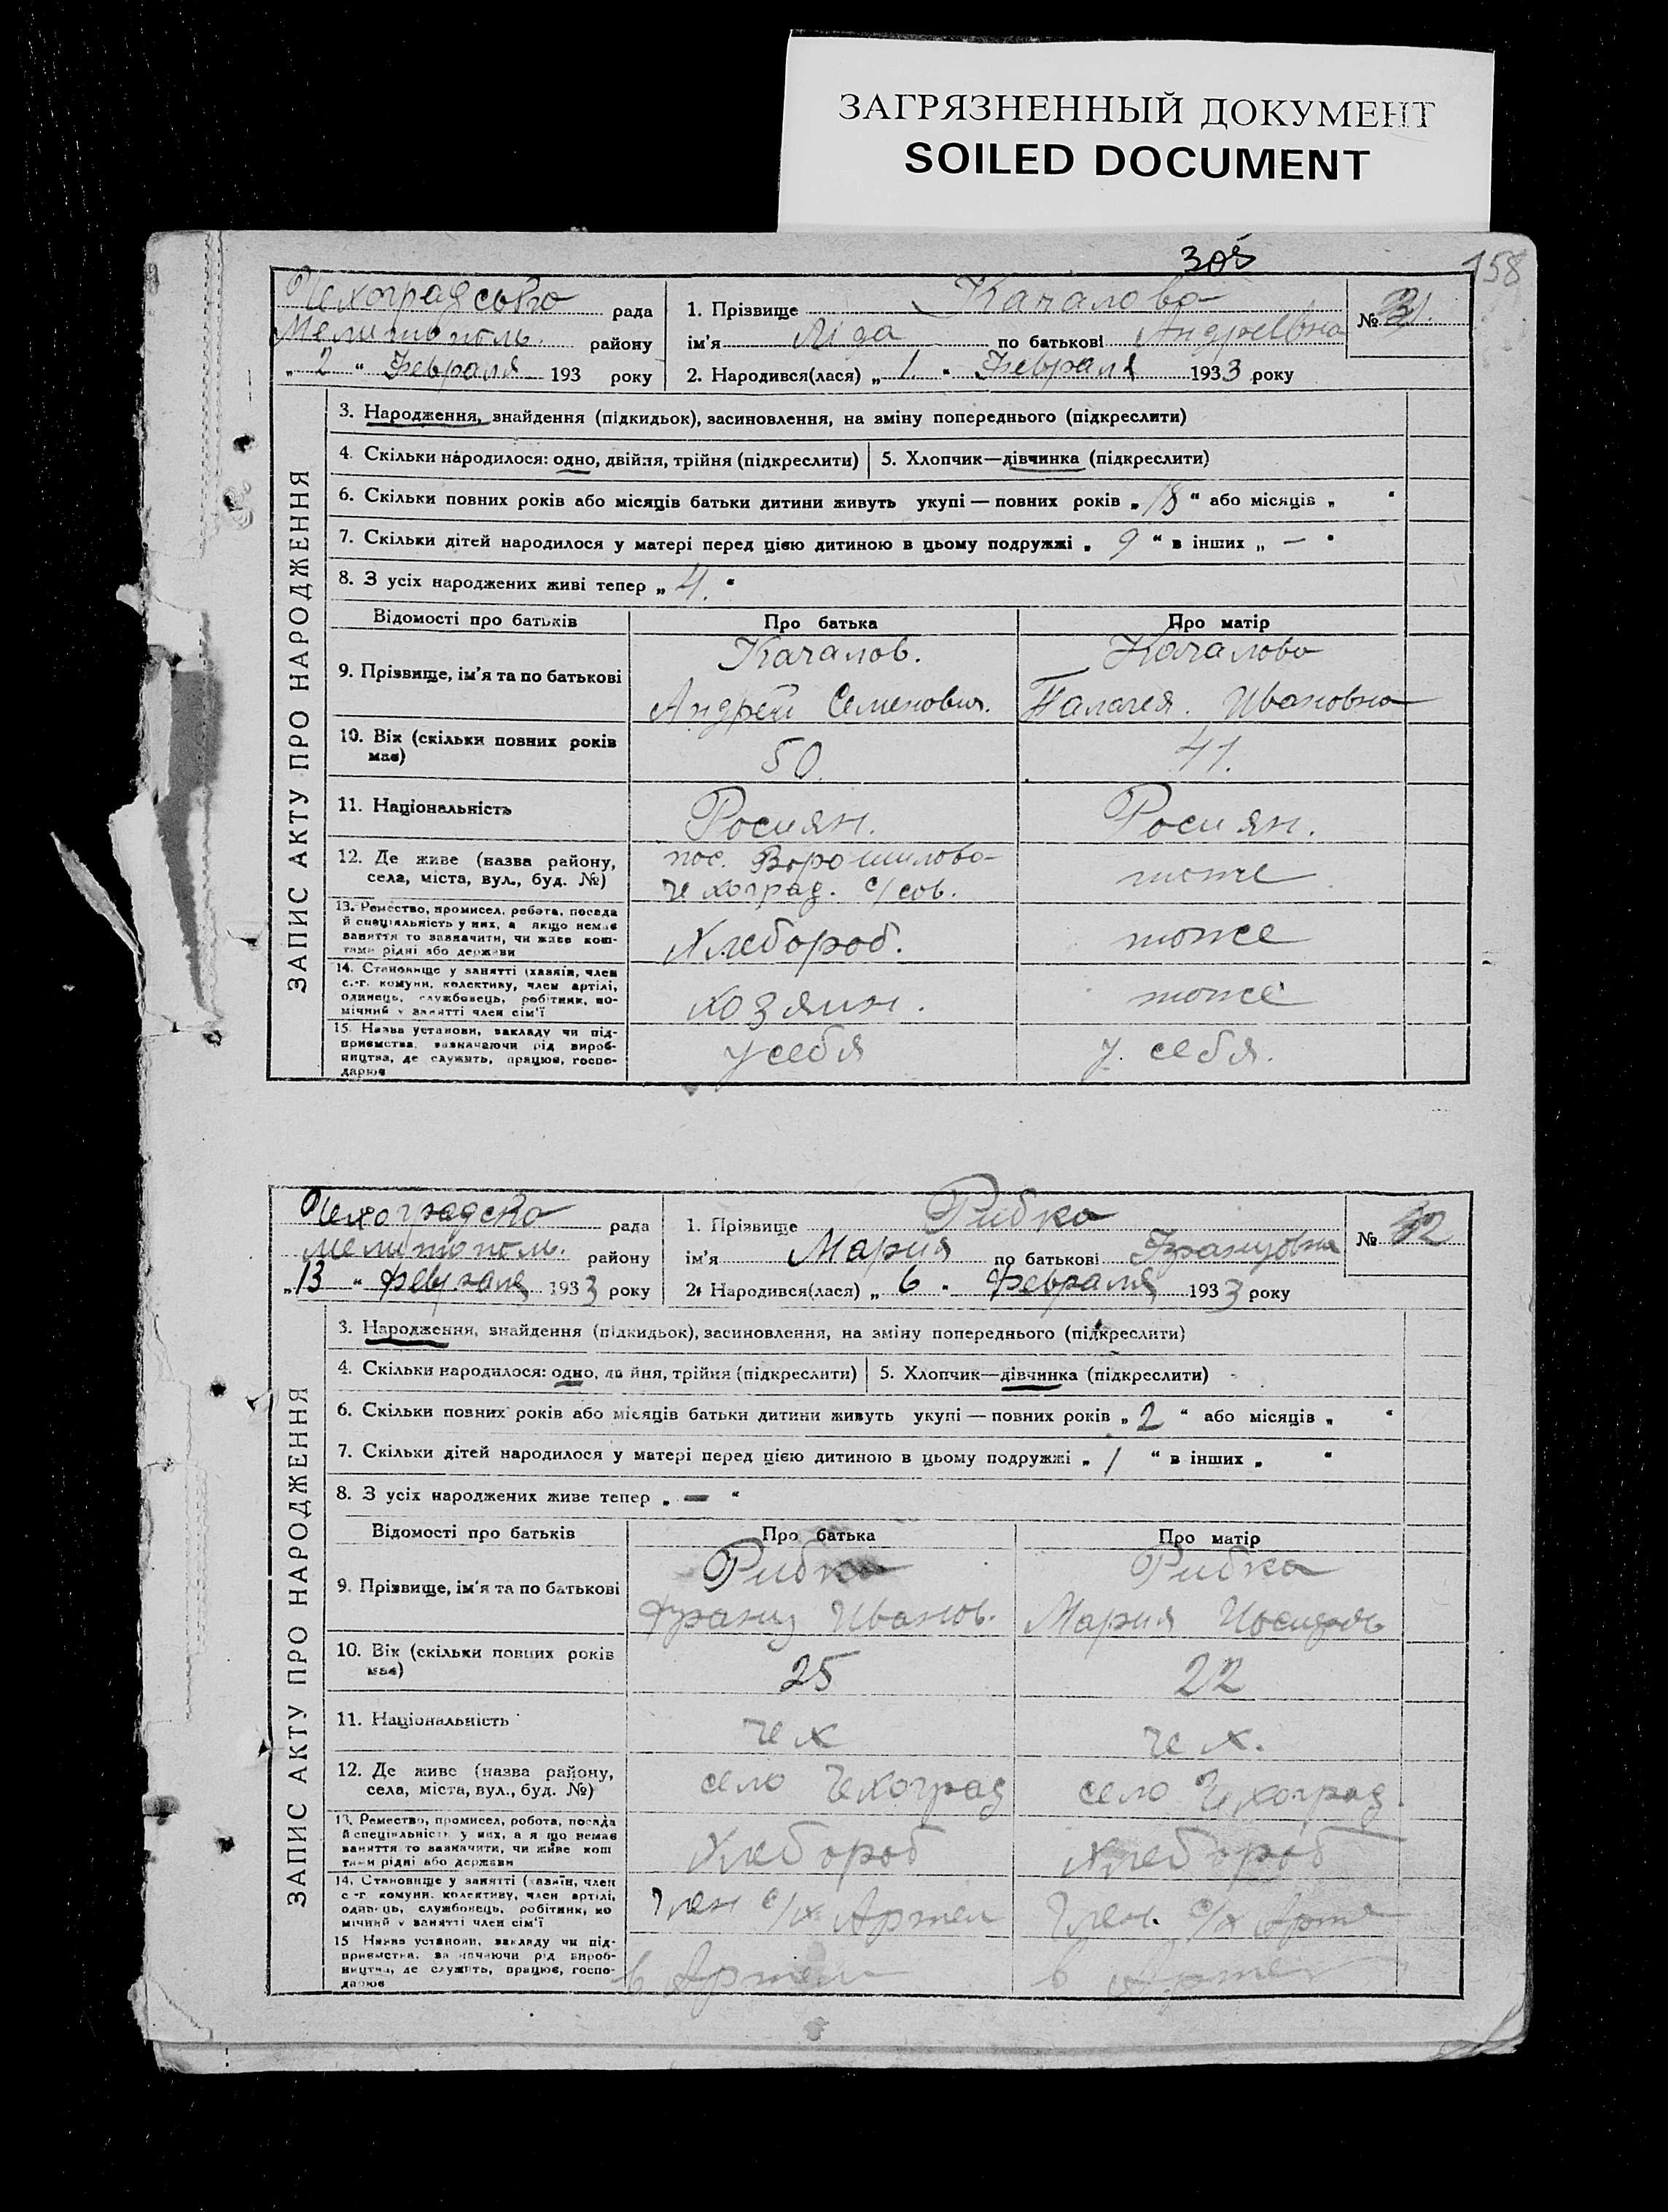 ЗАГРЯЗНЕННЫЙ ДОКУМЕНТ
SOILED DOCUMENT
158
ЗАПИС АКТУ ПРО НАРОДЖЕННЯ
рада
1. Прізвище Качалова
№
Мелитополь. району
ім'я Ліда по батькові Андреевна
„ 2 “ Февраля 193 року
2. Народився(лася) „ 1 “ Февраля 1933 року
3. Народження, знайдення (підкидьок), засиновлення, на зміну попереднього (підкреслити)
4. Скільки народилося: одно, двійня, трійня (підкреслити)
5. Хлопчик—дівчинка (підкреслити)
6. Скільки повних років або місяців батьки дитини живуть укупі — повних років „ 18 “ або місяців „ “
7. Скільки дітей народилося у матері перед цією дитиною в цьому подружжі „ 9 “ в інших „ — “
8. З усіх народжених живі тепер „ 4. “
Відомості про батьків
Про батька
Про матір
9. Прізвище, ім'я та по батькові
Качалов.
Андрей Семенович.
Качалова
Палагея. Ивановна
10. Вік (скільки повних років
має)
50.
41.
11. Національність
Росиян.
Росиян.
12. Де живе (назва району,
села, міста, вул., буд. №)
пос. Ворошилово-
Чехоград. с/сов.
тоже
13. Ремество, промисел, робота, посада
й спеціяльність у них, а якщо немає
заняття то зазначити, чи живе кош-
тами рідні або держави
Хлебороб.
тоже
14. Становище у занятті (хазяїн, член
с.-г. комуни, колективу, член артілі,
одинець, службовець, робітник, по-
мічний у занятті член сім'ї
хозяин.
тоже
15. Назва установи, закладу чи під-
приємства, зазначаючи рід вироб-
ництва, де служить, працює, госпо-
дарює
у себя
у. себя.
ЗАПИС АКТУ ПРО НАРОДЖЕННЯ
рада
1. Прізвище Рибка
№
Мелитополь. району
ім'я Мария по батькові Францовна
„ 13 “ февраля 1933 року
2. Народився(лася) „ 6 “ Февраля 1933 року
3. Народження, знайдення (підкидьок), засиновлення, на зміну попереднього (підкреслити)
4. Скільки народилося: одно, двійня, трійня (підкреслити)
5. Хлопчик—дівчинка (підкреслити)
6. Скільки повних років або місяців батьки дитини живуть укупі — повних років „ 2 “ або місяців „ “
7. Скільки дітей народилося у матері перед цією дитиною в цьому подружжі „ 1 “ в інших „ “
8. З усіх народжених живе тепер „ — “
Відомості про батьків
Про батька
Про матір
9. Прізвище, ім'я та по батькові
Рибка
Франц Иванов.
Рибка
Мария
10. Вік (скільки повних років
має)
25
22
11. Національність
чех
чех.
12. Де живе (назва району,
села, міста, вул., буд. №)
село Чехоград
село Чехоград.
13. Ремество, промисел, робота, посада
й спеціяльність у них, а якщо немає
заняття то зазначити, чи живе кош
тами рідні або держави
Хлебороб
Хлебороб
14. Становище у занятті (хазяїн, член
с-г комуни, колективу, член артілі,
одинець, службовець, робітник, по
мічний у занятті член сім'ї
Член с/х Артел
Член. с/х
15 Назва установи, закладу чи під-
приємства, зазначаючи рід вироб-
ництва, де служить, працює, госпо-
дарює
в Артели
в